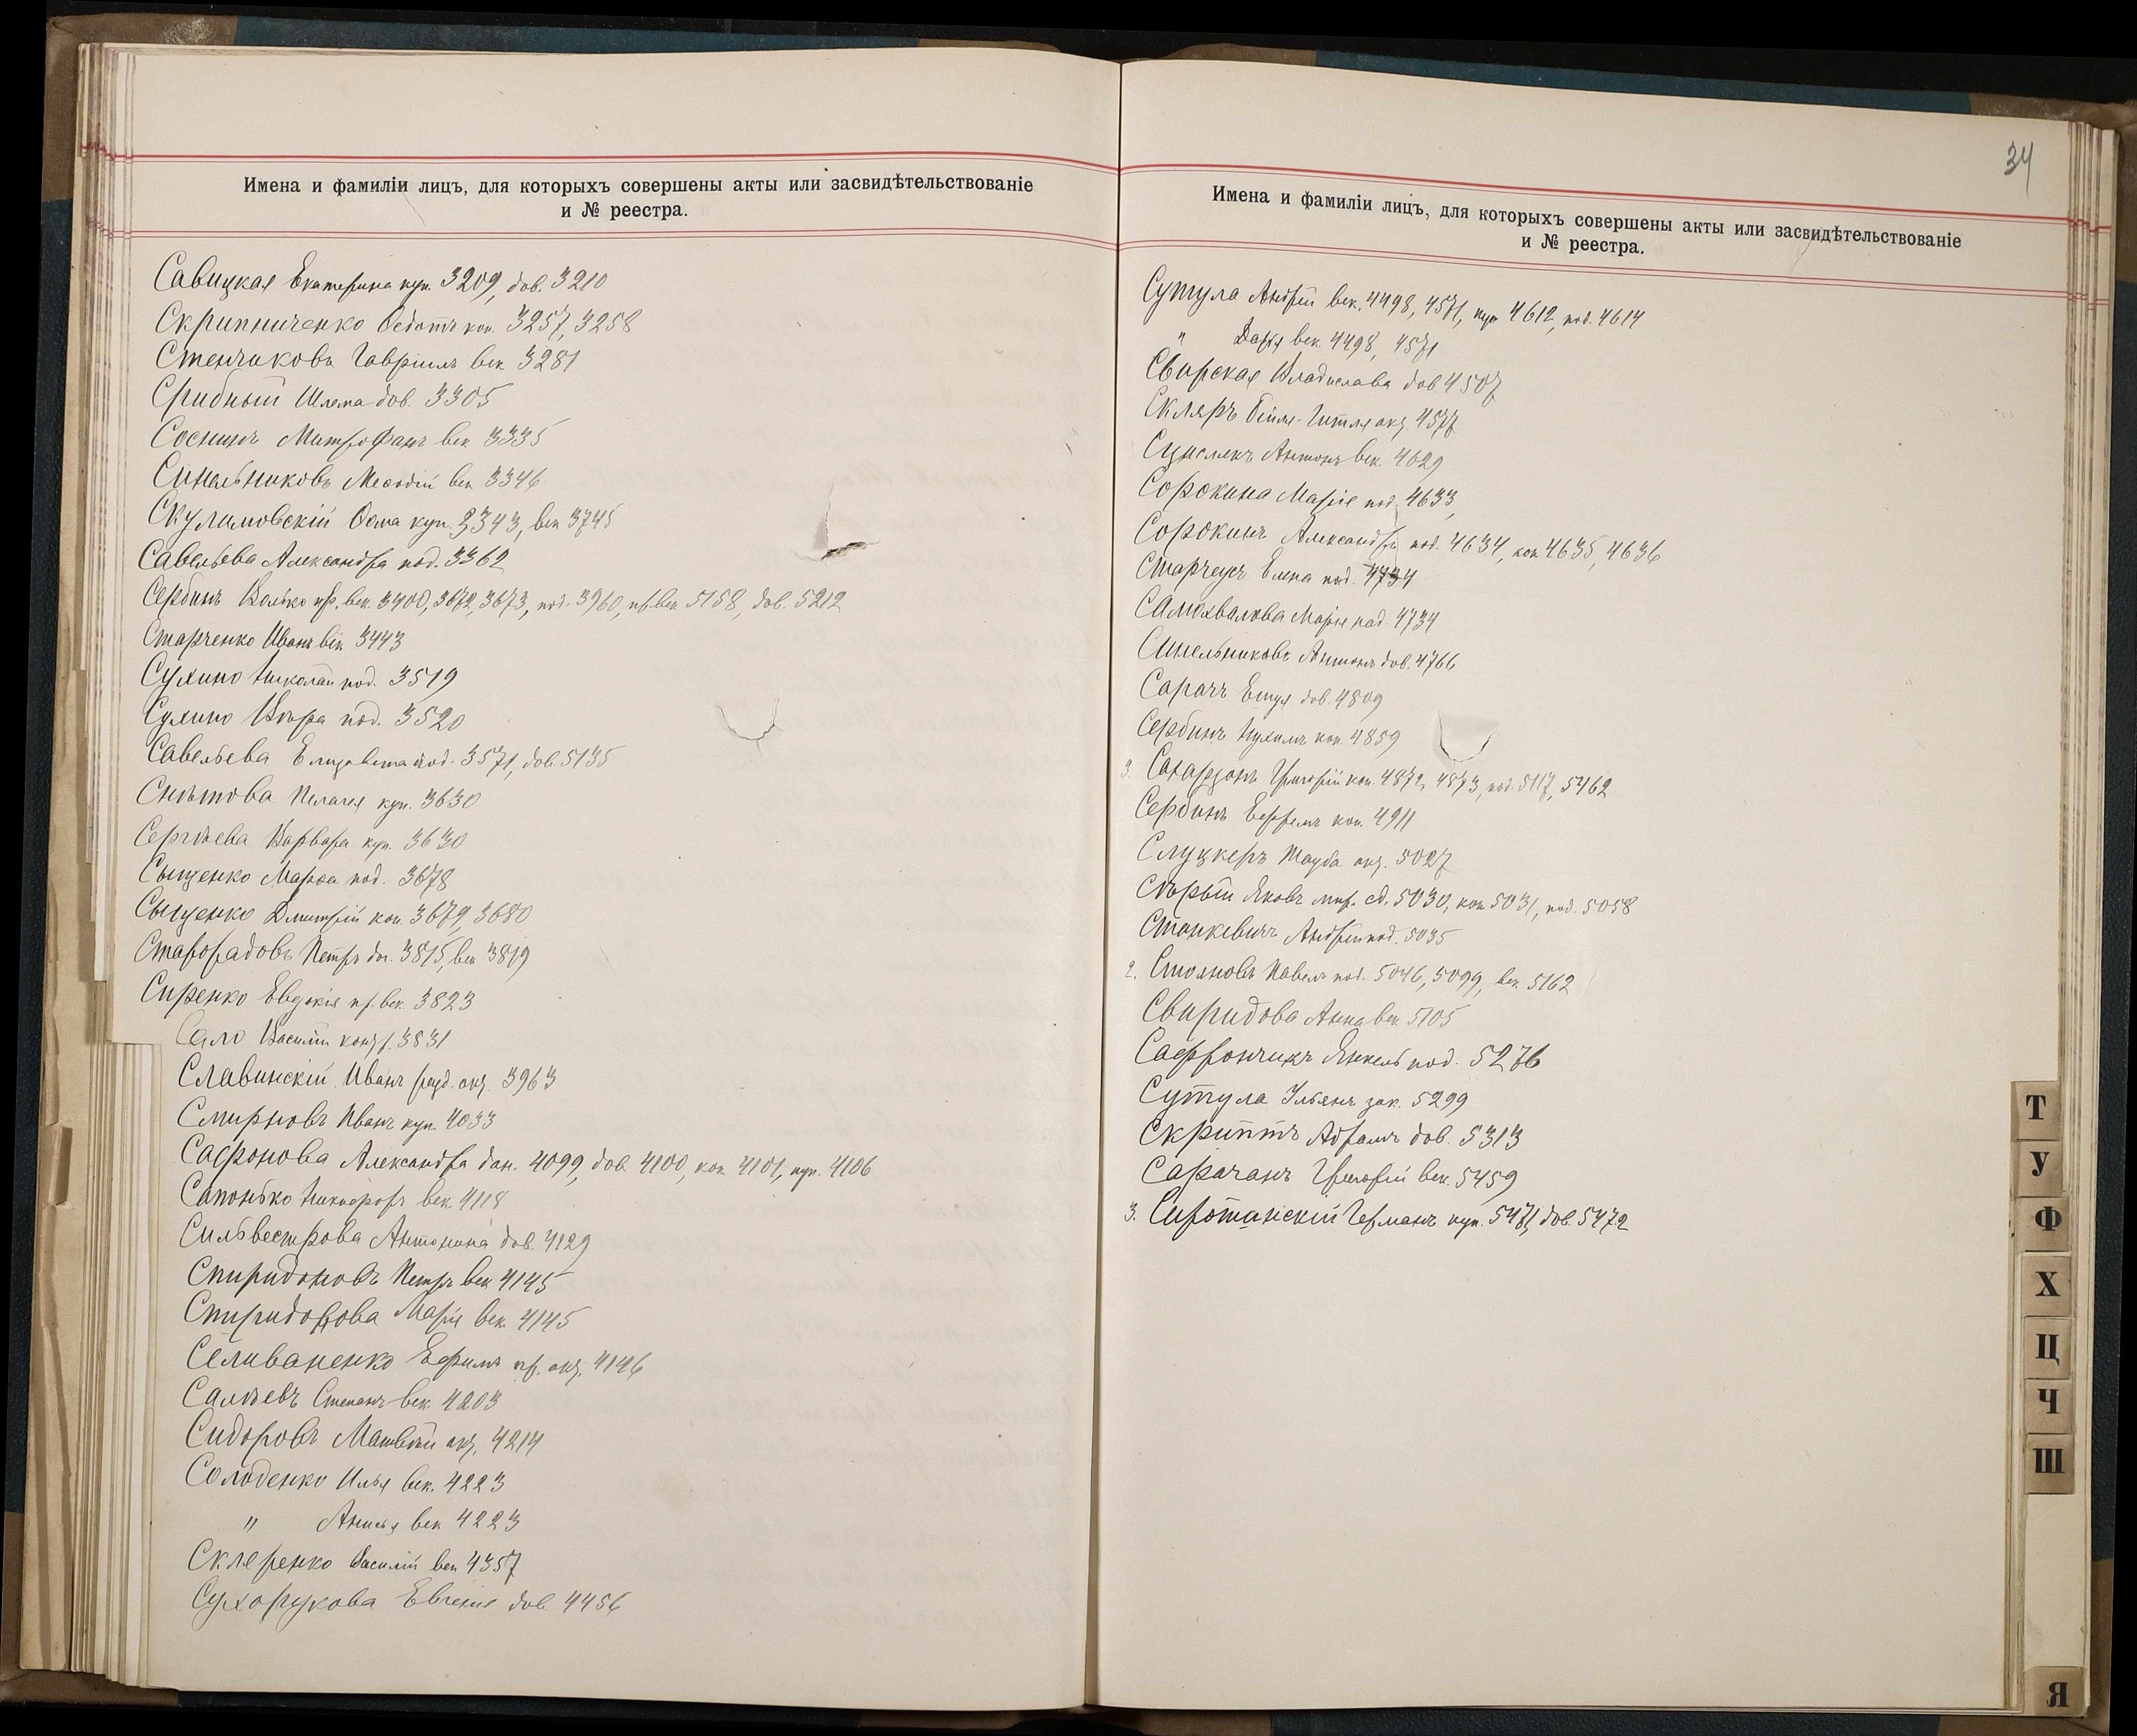 Имена и фамиліи лицъ, для которыхъ совершены акты или засвидѣтельствованіе
и № реестра.
Савицкая Екатерина куп. 3209, дов. 3210
Скрипниченко Ѳедотъ коп. 3257, 3258
Стенчиковъ Гавріилъ век 3281
Срибный Шлема дов. 3305
Соснинъ Митрофанъ век 3335
Синельниковъ Меѳодій век 3346
Скулимовскій Ѳома куп. 3343, век 3745
Савельева Александра под. 3362
Сербинъ Волько пр. век. 3400, 3672, 3673, под. 3960, пр. век 5158, дов. 5212
Старченко Иванъ век 3443
Сухино Николай под. 3519
Сухино Вѣра под. 3520
Савельева Елизавета под. 3571, дов. 5135
Снѣтова Пелагея куп. 3630
Сергѣева Варвара куп. 3630
Сыщенко Марѳа под. 3678
Сыщенко Дмитрій коп. 3679, 3680
Старорадовъ Петръ дог. 3815, век 3819
Сиренко Евдокія пр. век. 3823
Сало Василій 3831
Славинскій Иванъ разд. акц. 3963
Смирновъ Иванъ куп. 4033
Сафонова Александра дан. 4099, дов. 4100, коп. 4101, куп. 4106
Сапонько Никифоръ век 4118
Сильвестрова Антонина дов. 4129
Спиридоновъ Петръ век 4145
Спиридонова Марія век. 4145
Селиваненко Ефимъ пр. акц. 4146
Салѣевъ Степанъ век. 4203
Сидоровъ Матвѣй акц. 4214
Солоденко Илья век. 4223
" Анисья век 4223
Скляренко Василій век 4357
Сухорукова Евгенія дов. 4456
34
Имена и фамиліи лицъ, для которыхъ совершены акты или засвидѣтельствованіе
и № реестра.
Сутула Андрей век. 4498, 4571, куп 4612, под. 4614
" Дарья век. 4498, 4571
Свирская Владислава дов 4507
Скляръ Бейля-Гитля акц. 4577
Антонъ век 4629
Сорокина Марія под. 4633,
Сорокинъ Александръ под. 4634, коп 4635, 4636
Старчеусъ Елена под. 4734
Самохвалова Марія под. 4734
Синельниковъ Антонъ дов. 4766
Сарачъ дов. 4809
Сербинъ Нухимъ коп. 4859
3. Григорій коп. 4872, 4873, под. 5117, 5462
Сербинъ коп. 4911
Слуцкеръ Тауба акц. 5027
Сѣрый Яковъ мир. сд. 5030, коп 5031, под. 5058
Станкевичъ Андрей под. 5035
2. Стояновъ Павелъ под. 5046, 5099, век 5162
Свиридова Анна век 5105
Сафрончикъ Янкель под. 5276
Сутула Ульянъ зак. 5299
Скриптъ Абрамъ дов. 5313
Сарачанъ Григорій век. 5459
3. Сиротанскій Германъ куп. 5471, дов. 5472
Т
У
Ф
Х
Ц
Ч
Ш
Я